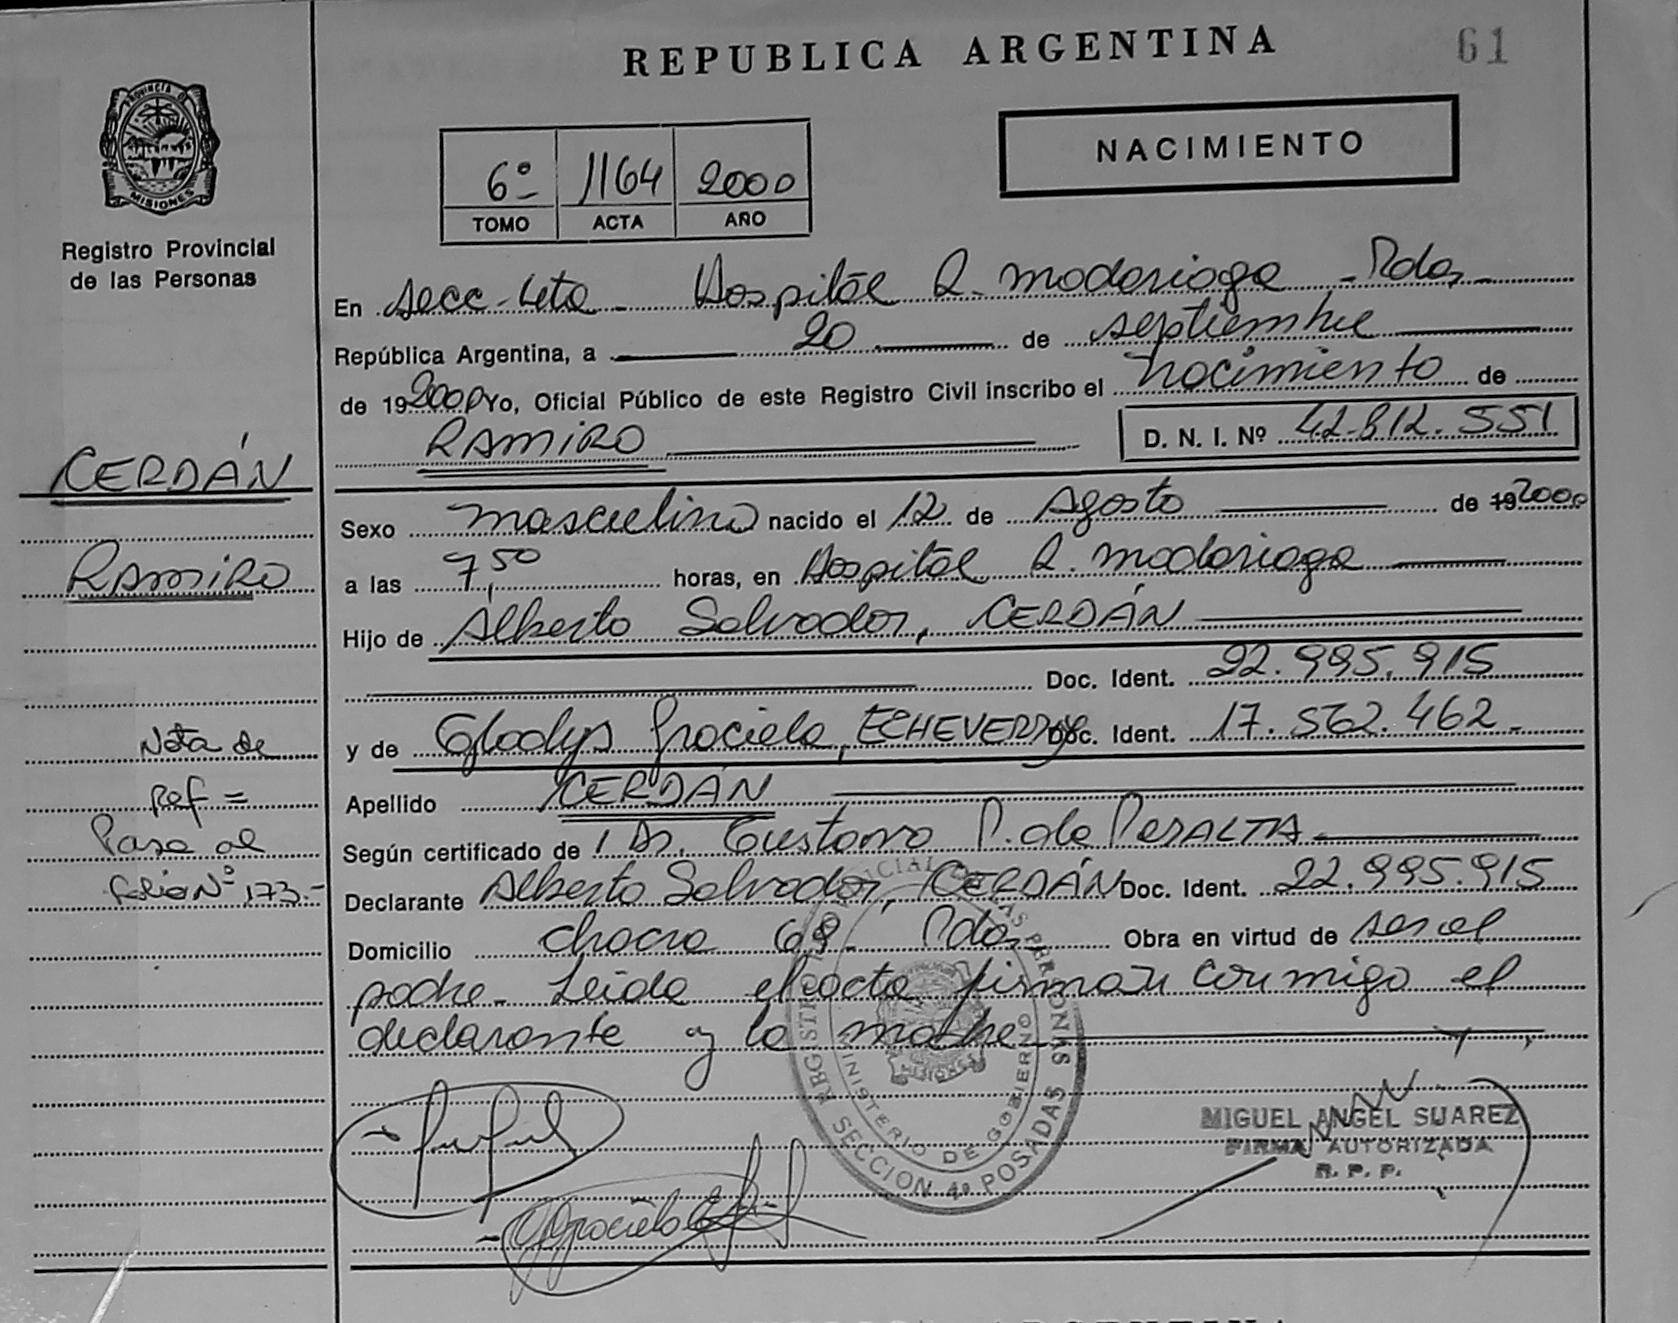 REPUBLICA ARGENTINA
61
PROVINCIA DE
MISIONES
Registro Provincial
de las Personas
NACIMIENTO
6º 1164 2000
TOMO ACTA AÑO
En Secc. 4ta - Hospital R. Madariaga - Pdas -
República Argentina, a 20 de septiembre
de 192000 Yo, Oficial Público de este Registro Civil inscribo el nacimiento de
RAMIRO D. N. I. Nº 42.812.551
CERDÁN
Sexo masculino nacido el 12 de Agosto de 192000
RAMIRO
a las 7,50 horas, en Hospital R. Madariaga
Hijo de Alberto Salvador, CERDÁN
Doc. Ident. 22.995.915
y de Gladys Graciela, ECHEVERRIA Doc. Ident. 17.562.462.-
Apellido CERDÁN
Según certificado de Dr. Gustavo P. de PERALTA -
Declarante Alberto Salvador, CERDÁN Doc. Ident. 22.995.915
Domicilio chacra 68 - Pdas - Obra en virtud de ser el
padre - Leida el acta firman conmigo el
declarante y la madre
Nota de
Ref =
Pasa al
folio Nº 173.-
MINISTERIO DE GOBIERNO
MISIONES
SECCION 4ª POSADAS
MIGUEL ANGEL SUAREZ
FIRMA AUTORIZADA
R. P. P.